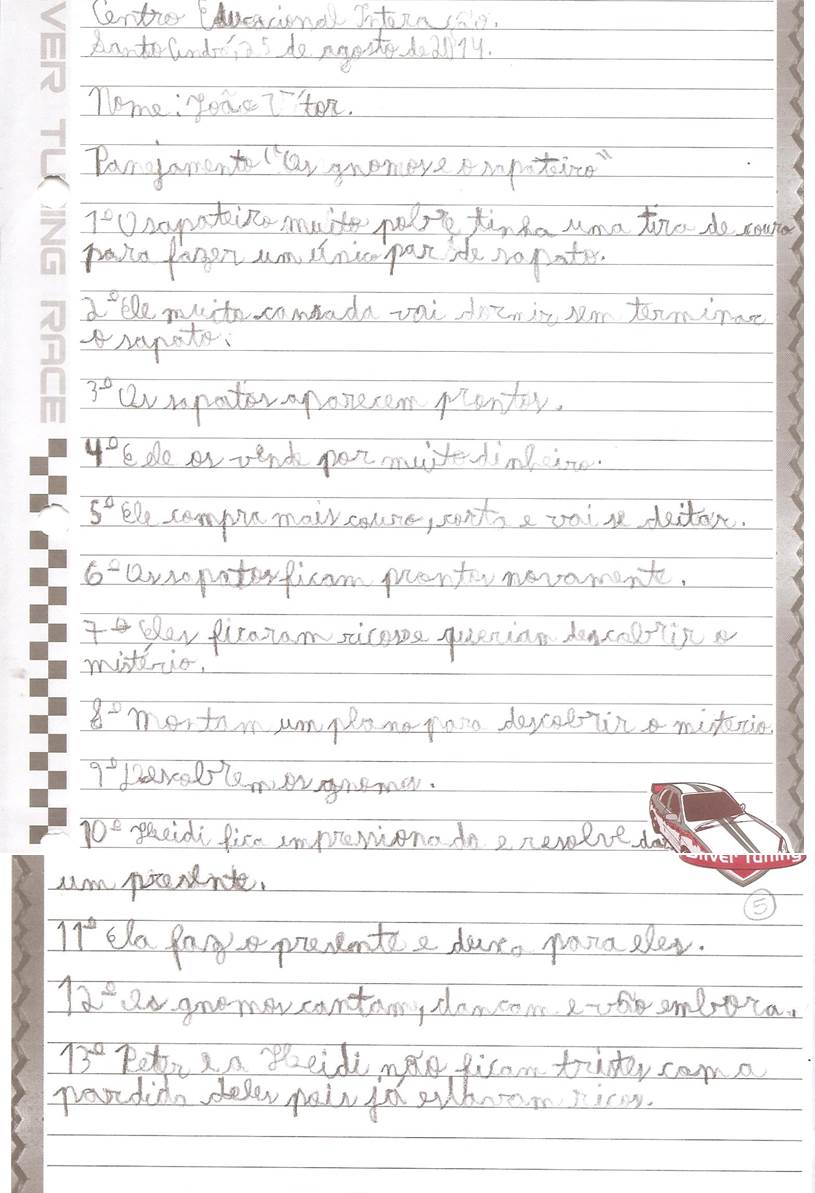 Centro Educacional Interação.
Santo André, 25 de agosto de 2014.
Nome: João Vítor.
Panejamento ("Os gnomos e o sapateiro"
1º O sapateiro muito pobre tinha uma tira de couro
para fazer um único par de sapato.
2º Ele muito cansado vai dormir sem terminar
o sapato.
3º Os sapatos aparecem prontos.
4º E ele os vende por muito dinheiro.
5º Ele compra mais couro, corta e vai se deitar.
6º Os sapatos ficam prontos novamente.
7º Eles ficaram ricos e queriam descobrir o
mistério.
8º Montam um plano para descobrir o misterio.
9º Descobrem os gnomos.
10º Heidi fica impressionada e resolve dar
um presente.
11º Ela faz o presente e deixa para eles.
12º Os gnomos cantam, dancam e vão embora.
13º Peter e a Heidi não ficam tristes com a
partida deles pois já estavam ricos.
VER TUNING RACE
Silver Tuning
5